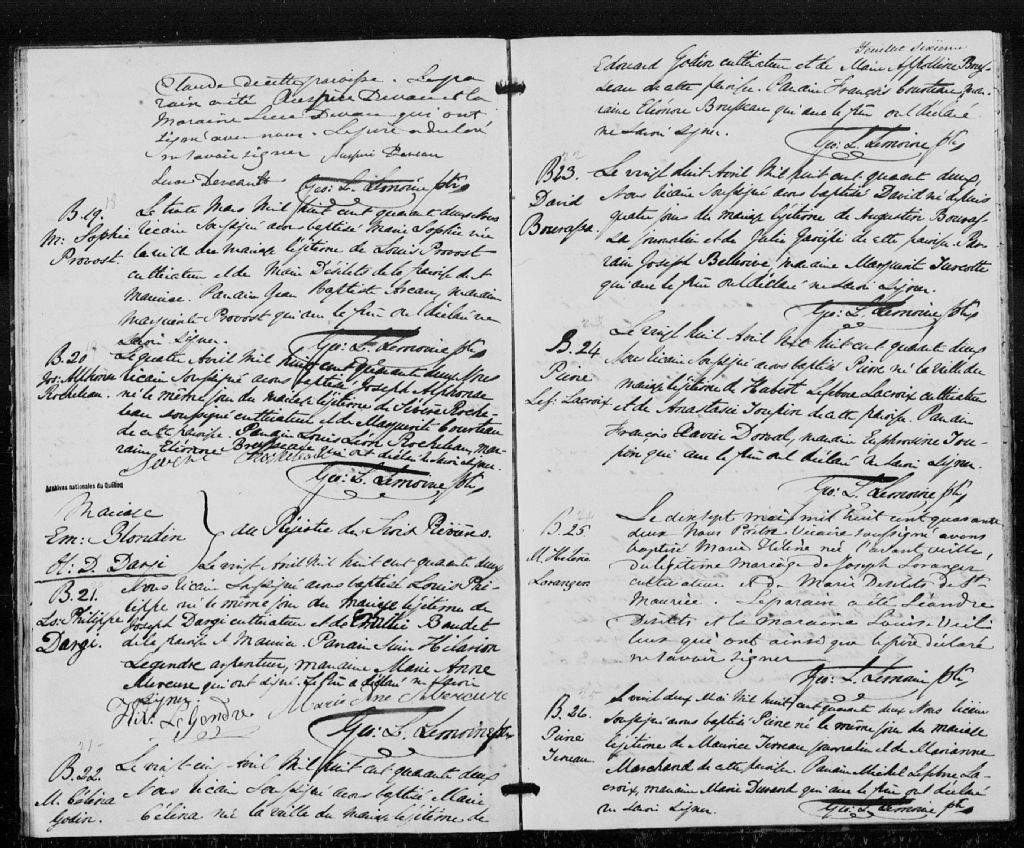 Claude de cette paroisse. Le par
rain a été Prospère Devau et la
Maraine Luce Devau qui ont
signé avec nous. Le père a déclaré
ne savoir signer Prosper Deveau
Luce Deveault Geo: L. Lemoine ptre
B. 19. Le trente Mars Mil huit cent quarante deux Nous
M: Sophie Vicaire Soussigné avons baptisé Marie Sophie née
Provost. la veille du mariage légitime de Louis Provost
cultivateur et de Marie Désilets de la paroisse de St
Maurice. Parrain Jean Baptiste moreau, marraine
Marguerite Provost qui avec le père ont déclaré ne
Savoir Signer. Geo: L. Lemoine ptre
B. 20 Le quatre Avril Mil huit cent quarante deux Nous
Jos: Alphonse Vicaire Soussigné avons baptisé Joseph Alphonse
Rocheleau. né le même jour du mariage légitime de Sévère Roche-
leau soussigné cultivateur et de Marguerite Courteau
de cette paroisse. Parrain Louis Léon Rocheleau, Mar-
raine, Eléonore Brousseau qui ont déclaré ne savoir signer.
Sévère Rocheleau
Geo: L. Lemoine ptre
Archives nationales du Québec
Mariage
Em: Blondin du Régistre des Trois Rivières.
et: D. Dargi
Le vingt Avril Mil huit cent quarante deux
B. 21. Nous Vicaire Soussigné avons baptisé Louis Phi-
Ls: Philippe lippe né le même jour du mariage légitime de
Dargi. Joseph Dargi cultivateur et de Emilie Baudet
de la paroisse St Maurice. Parrain Jean Hilarion
Legendre arpenteur, marraine Marie Anne
Mercure qui ont signé. Le père a déclaré ne savoir
signer
Hil: LeGendre Marie Anne Mercure
Geo: L. Lemoine ptre
B. 22. Le vingt six Avril Mil huit cent quarante deux
M. Célina Nous Vicaire Soussigné avons baptisé Marie
Godin. Célina née la veille du mariage légitime de
Feuillet Sixième
Edouard Godin cultivateur et de Marie Appolline Brous-
seau de cette paroisse. Parrain François Courteau mar-
raine Eléonore Brousseau qui avec le père ont déclaré
ne Savoir Signer.
Geo: L. Lemoine ptre
B23. Le vingt huit Avril Mil huit cent quarante deux,
David Nous Vicaire Soussigné avons baptisé David né depuis
Bourassa. quatre jours du mariage légitime de Augustin Bouras-
sa journalier et de Julie Gariépi de cette paroisse. Par-
rain Joseph Bellerive, marraine Marguerite Turcotte
qui avec le père ont déclaré ne Savoir Signer.
Geo: L. Lemoine ptre
Le vingt huit Avril Mil huit cent quarante deux
B. 24 Nous Vicaire Soussigné avons baptisé Pierre né la veille du
Pierre mariage légitime de Hubert Lefebvre Lacroix cultivateur
Lef: Lacroix et de Anastasie Toupin de cette paroisse. Parrain
François Xavier Dorval, marraine Euphrosine Tou-
pin qui avec le père ont déclaré ne Savoir Signer.
Geo: L. Lemoine ptre
B. 25 Le dix sept mai mil huit cent quarante
deux Nous Prêtre Vicaire soussigné avons
M. Hélène baptisé Marie Hélène né l'avant veille
Loranger du légitime Mariage de Joseph Loranger
cultivateur et de Marie Désilets de St
Maurice. Le parain a été Léandre
Désilets et la maraine Louise Veil
leux qui ont ainsi que le père déclaré
ne savoir signer
Geo: L. Lemoine ptre
B. 26. Le vingt deux Mai Mil huit cent quarante deux Nous Vicaire
Pierre Soussigné avons baptisé Pierre né le même jour du mariage
Terreau. légitime de Maurice Terreau journalier et de Marianne
Marchand de cette paroisse. Parrain Michel Lefebvre La-
croix, marraine Marie Durand qui avec le père ont déclaré
ne Savoir Signer. Geo: L. Lemoine ptre